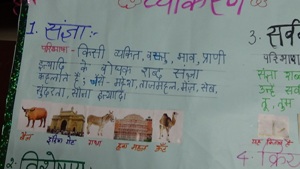 व्याकरण
1. संज्ञा :-
परिभाषा - किसी व्यक्ति, वस्तु, भाव, प्राणी
इत्यादि के बोधक शब्द संज्ञा
कहलाते हैं; जैसे - महेश, ताजमहल, मेज, सेब,
सुंदरता, सीता इत्यादि
बैल
इंडिया गेट
गाय
हवा महल
ऊँट
3. सर्व
परिभाषा
संज्ञा शब्द
उन्हें सर्व
तू, तुम
4. क्रि
2. विशेषण